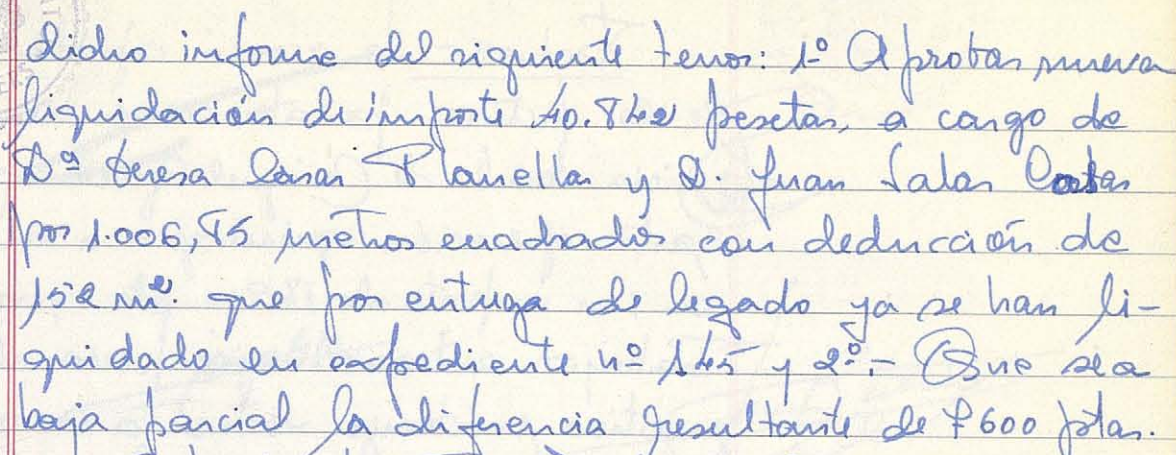 dicho informe del siguiente tenor: 1º Aprobar nueva
liquidación de importe 40.842 pesetas, a cargo de
Dª teresa Casas Planella y D. Juan Salas Costas
por 1.006,85 metros cuadrados con deducción de
152 m². que por entrega de legado ya se han li-
quidado en expediente nº 145 y 2º.- Que sea
baja parcial la diferencia resultante de 7600 ptas.